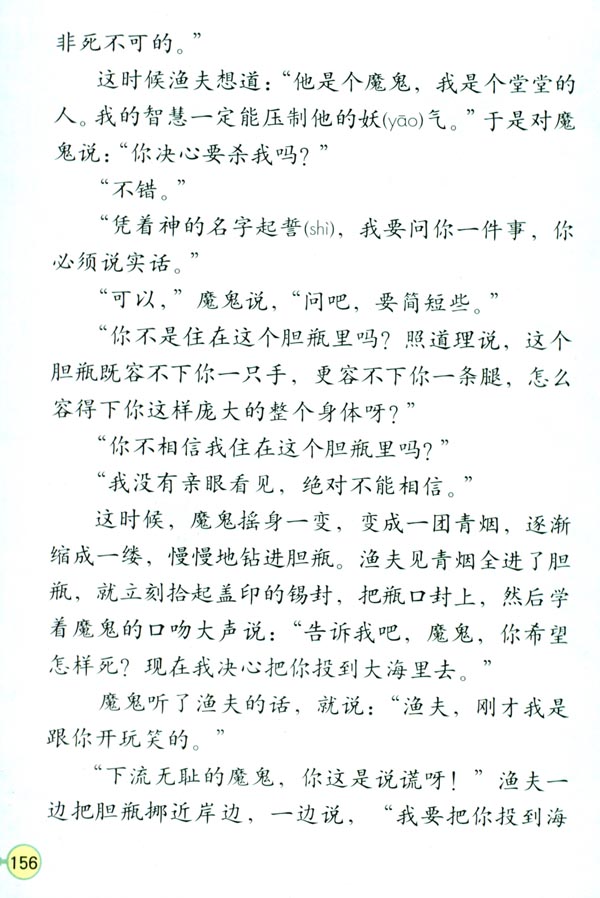 非死不可的。”
这时候渔夫想道：“他是个魔鬼，我是个堂堂的
人。我的智慧一定能压制他的妖(yāo)气。”于是对魔
鬼说：“你决心要杀我吗？”
“不错。”
“凭着神的名字起誓(shì)，我要问你一件事，你
必须说实话。”
“可以，”魔鬼说，“问吧，要简短些。”
“你不是住在这个胆瓶里吗？照道理说，这个
胆瓶既容不下你一只手，更容不下你一条腿，怎么
容得下你这样庞大的整个身体呀？”
“你不相信我住在这个胆瓶里吗？”
“我没有亲眼看见，绝对不能相信。”
这时候，魔鬼摇身一变，变成一团青烟，逐渐
缩成一缕，慢慢地钻进胆瓶。渔夫见青烟全进了胆
瓶，就立刻拾起盖印的锡封，把瓶口封上，然后学
着魔鬼的口吻大声说：“告诉我吧，魔鬼，你希望
怎样死？现在我决心把你投到大海里去。”
魔鬼听了渔夫的话，就说：“渔夫，刚才我是
跟你开玩笑的。”
“下流无耻的魔鬼，你这是说谎呀！”渔夫一
边把胆瓶挪近岸边，一边说，“我要把你投到海
156